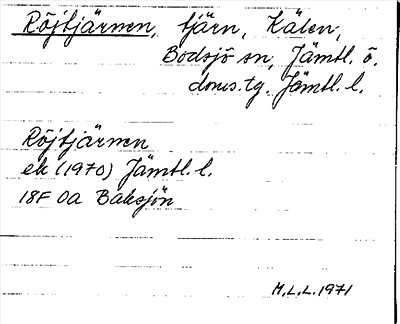 Röjtjärnen, tjärn, Kälen,
Bodsjö sn, Jämtl. ö.
doms.tg. Jämtl. l.
Röjtjärnen
ek (1970) Jämtl. l.
18F 0a Baksjön
M.L.L. 1971